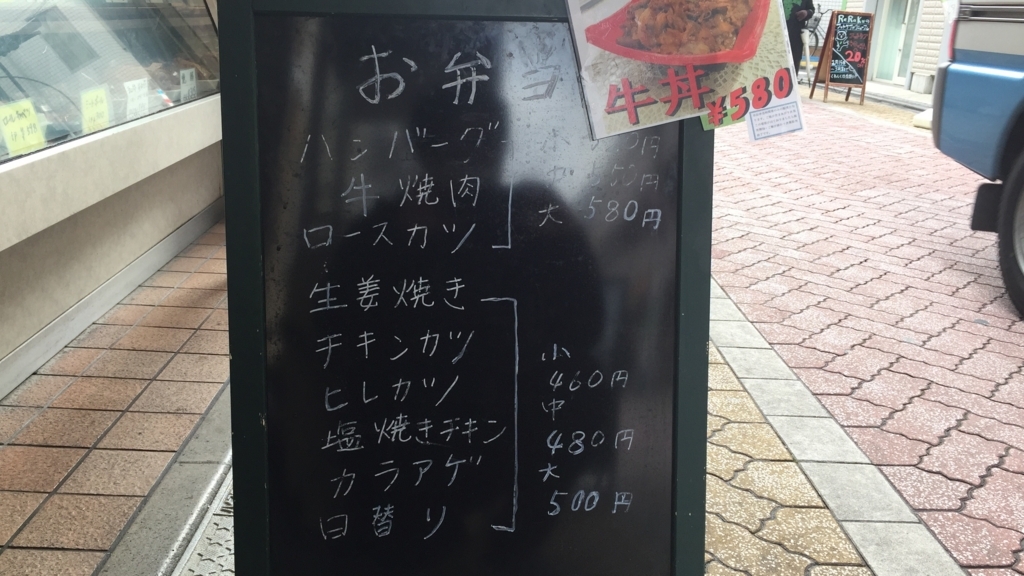 お弁当
牛丼 ¥580
ハンバーグ
牛焼肉
ロースカツ
円
円
大 580円
生姜焼き
チキンカツ
ヒレカツ
塩焼きチキン
カラアゲ
日替り
小
460円
中
480円
大
500円